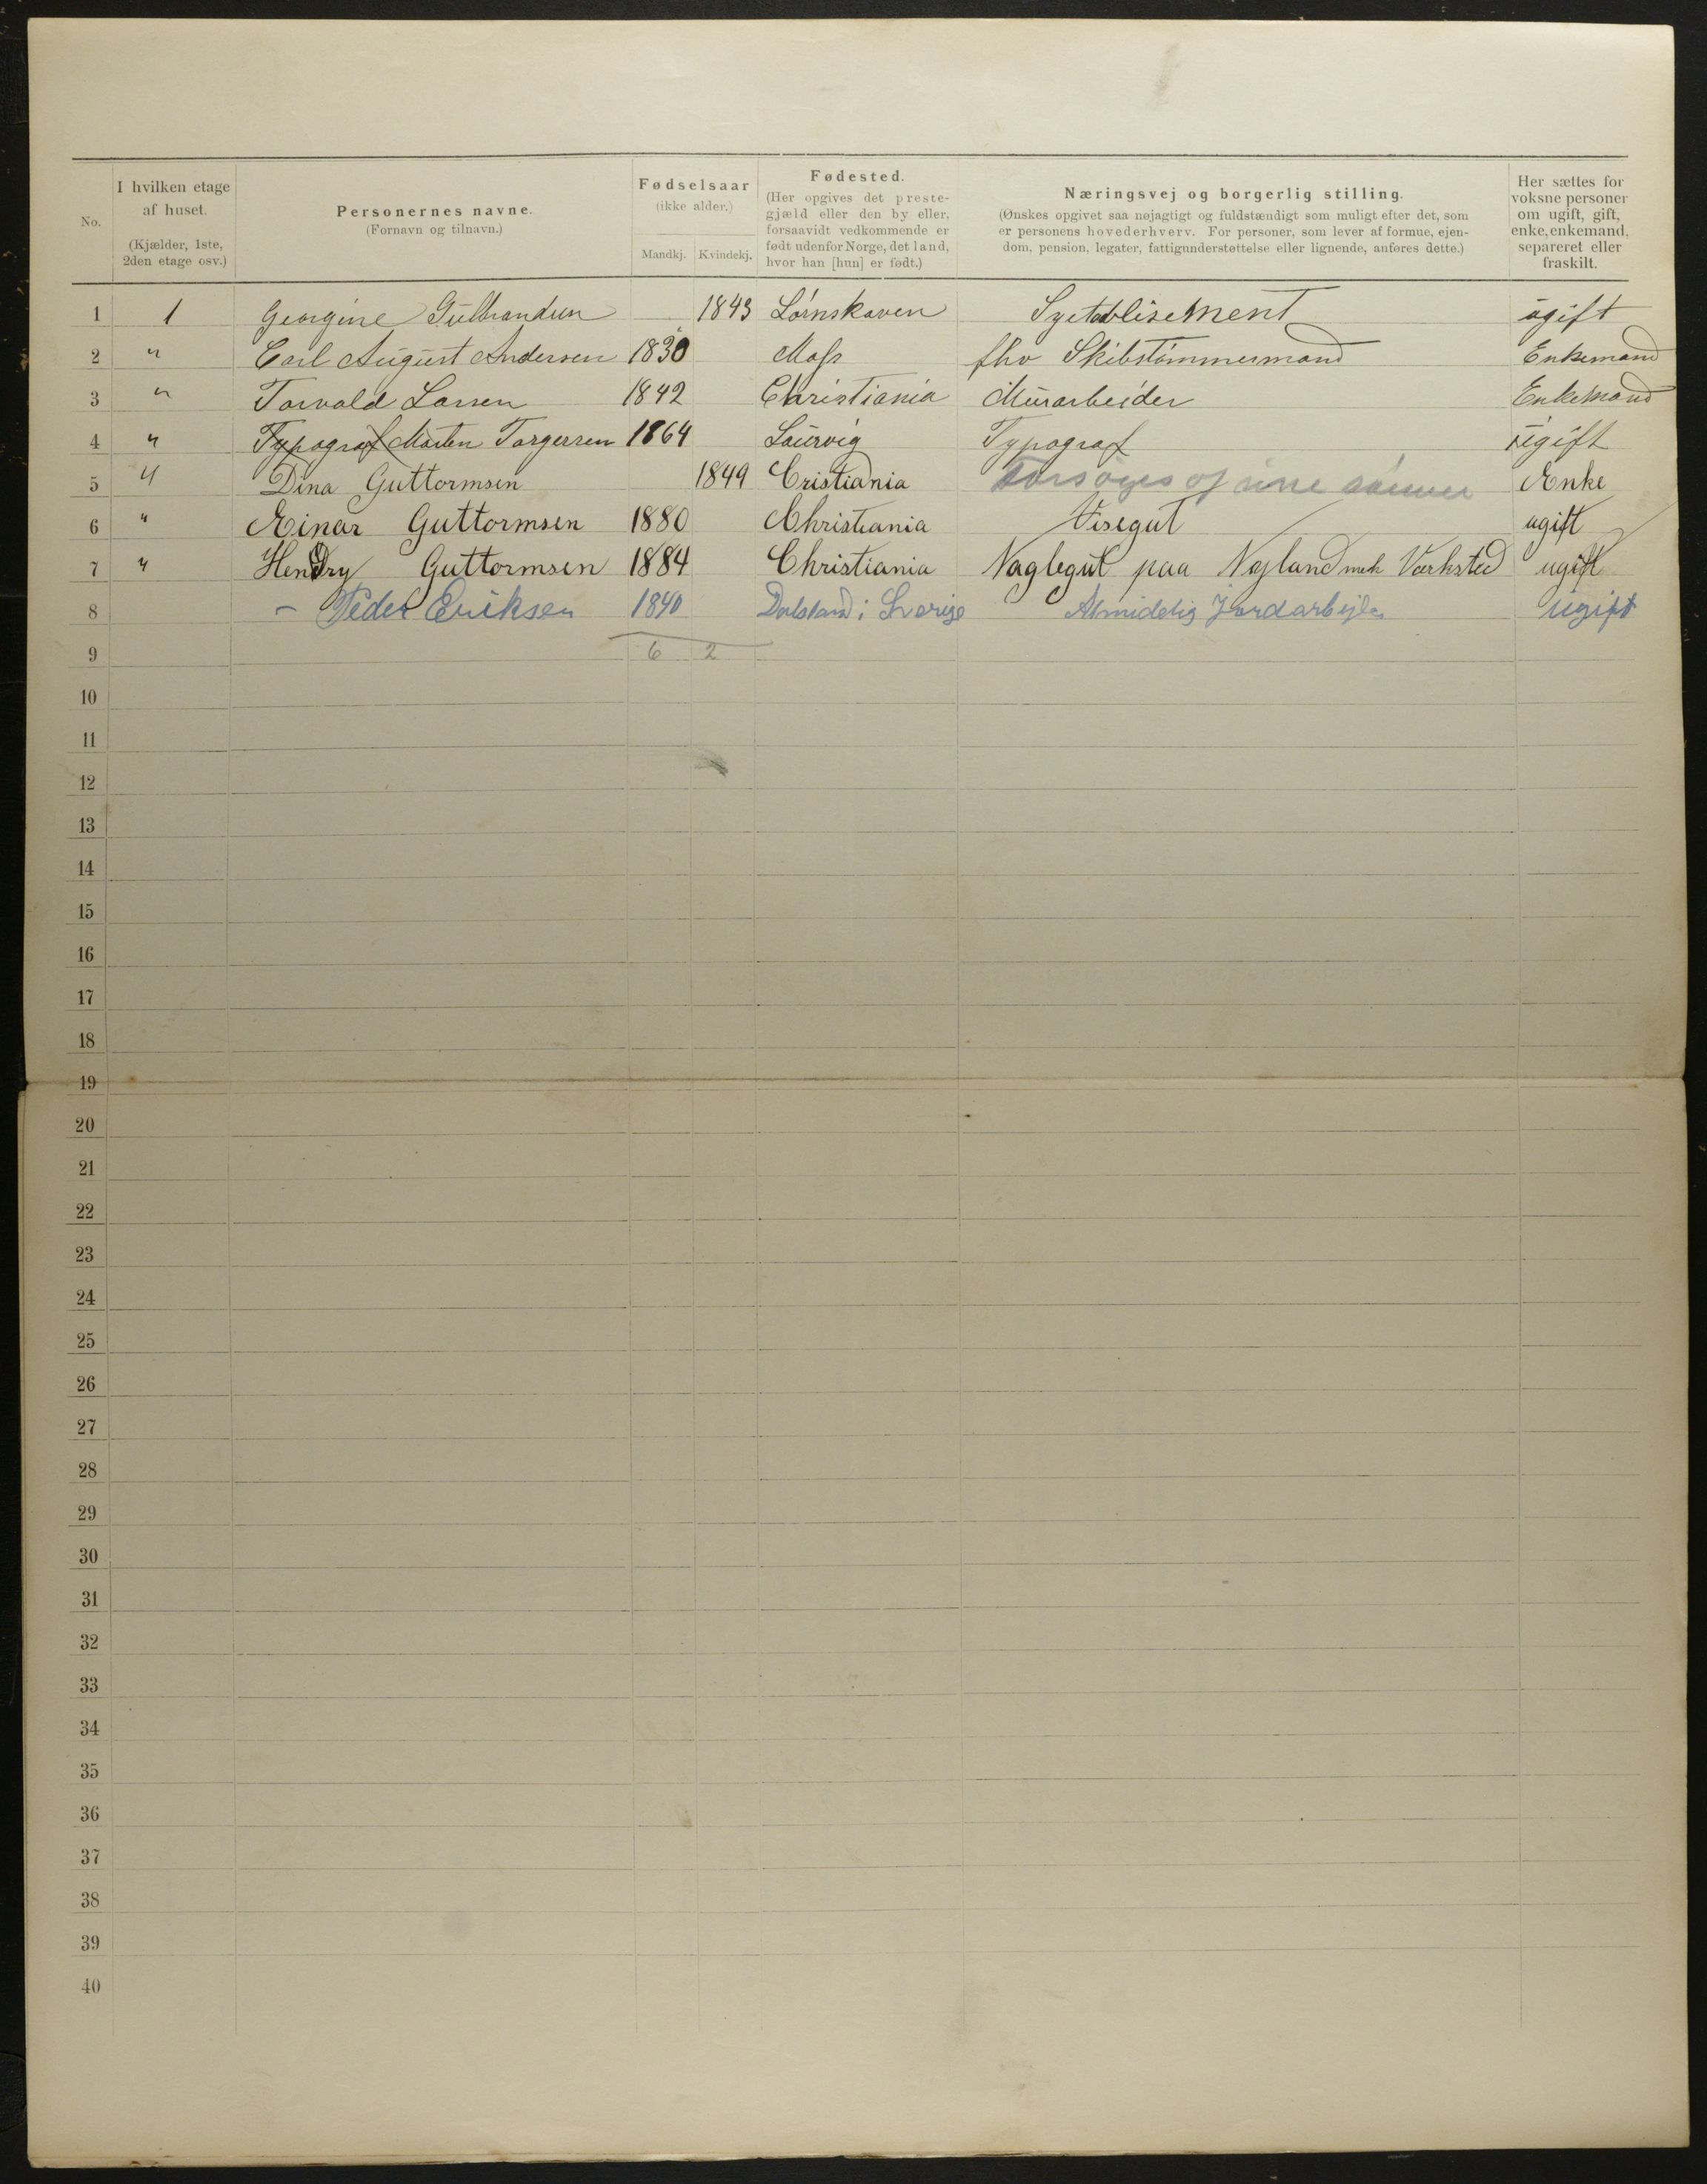 No. I hvilken etage af huset. (Kjælder, 1ste, 2den etage osv.) Personernes navne. (Fornavn og tilnavn.) Fødselsaar (ikke alder.) Mandkj. Kvindekj. Fødested. (Her opgives det prestegjæld eller den by eller, forsaavidt vedkommende er født udenfor Norge, det land, hvor han [hun] er født.) Næringsvej og borgerlig stilling. (Ønskes opgivet saa nøjagtigt og fuldstændigt som muligt efter det, som er personens hovederhverv. For personer, som lever af formue, ejendom, pension, legater, fattigunderstøttelse eller lignende, anføres dette.) Her sættes for voksne personer om ugift, gift, enke, enkemand, separeret eller fraskilt.
1 1 Georgine Gulbrandsen 1843 Lørnskaven Syetablisement ugift
2 " Carl August Andersen 1830 Moss fhv Skibstømmermand Enkemand
3 " Torvald Larsen 1842 Christiania Murarbeider Enkemand
4 " Typograf Marten Torgersen 1864 Laurvig Typograf ugift
5 " Dina Guttormsen 1849 Cristiania Forsørges af sine sønner Enke
6 " Einar Guttormsen 1880 Christiania Visegut ugift
7 " Hendry Guttormsen 1884 Christiania Naglegut paa Nyland mek Værksted ugift
8 – Peder Eriksen 1840 Dalsland i Sverige Almidelig Jordarbejder ugift
9 6 2
10
11
12
13
14
15
16
17
18
19
20
21
22
23
24
25
26
27
28
29
30
31
32
33
34
35
36
37
38
39
40